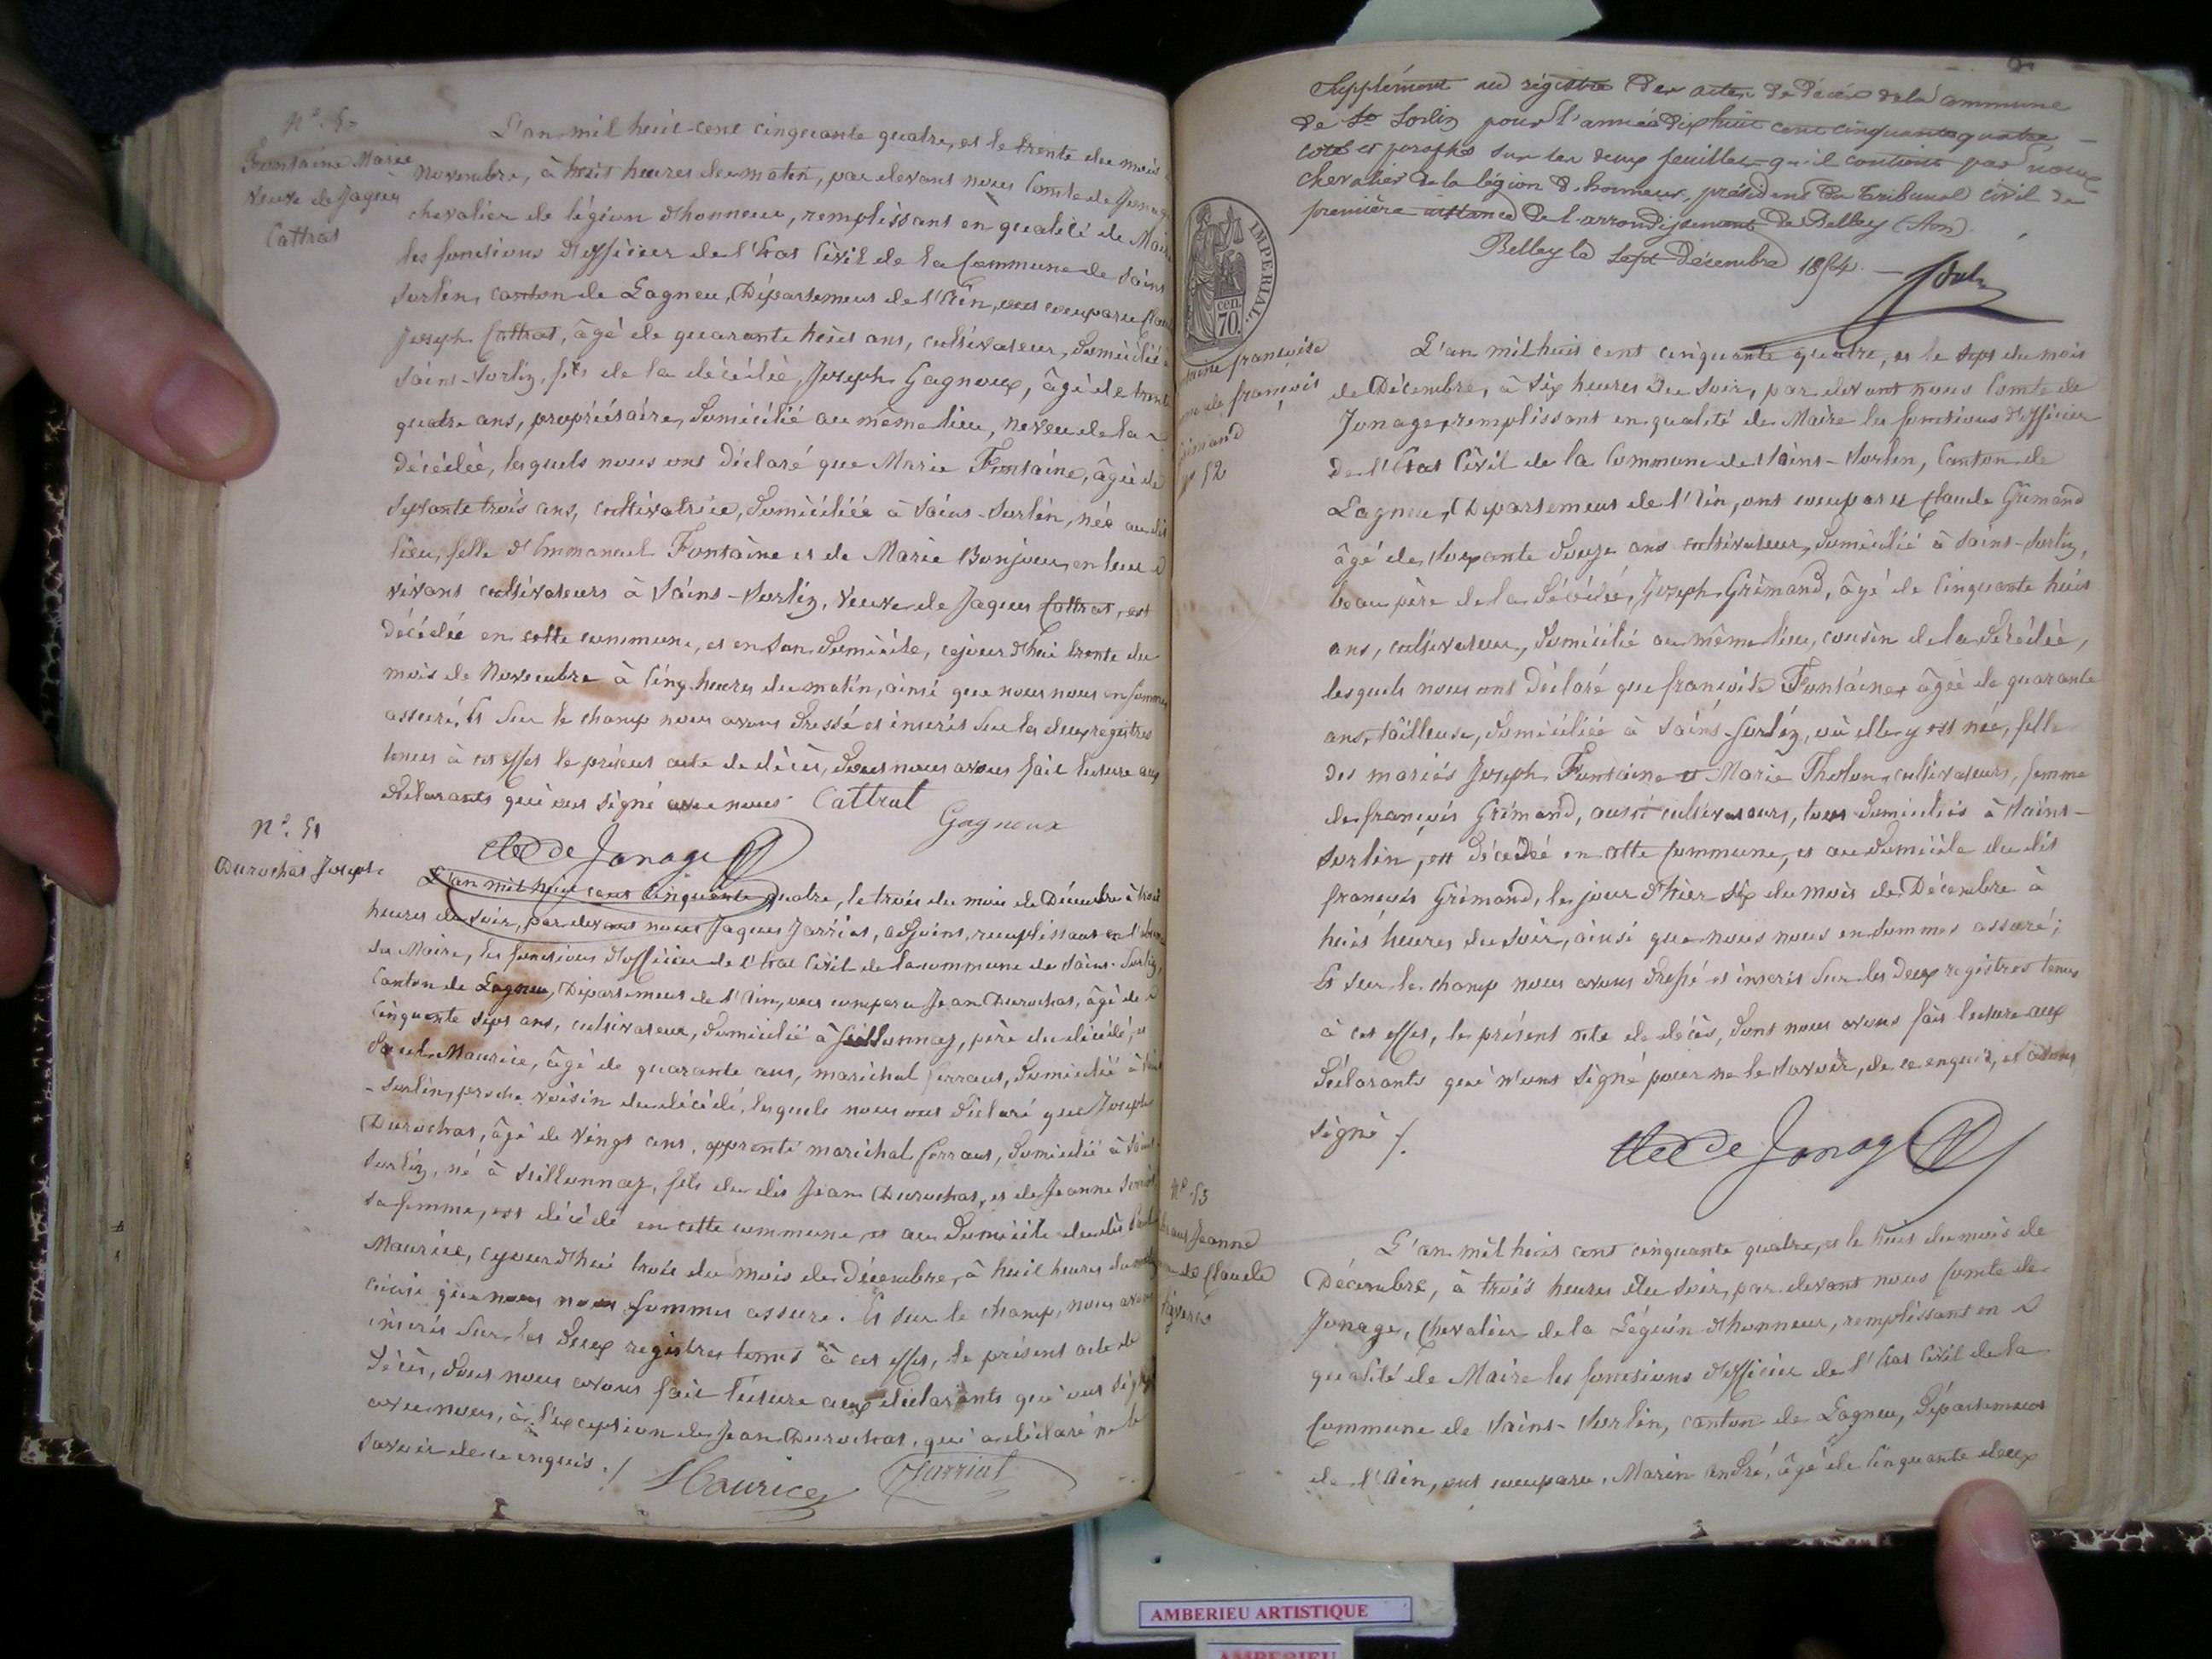 Fontaine Marie
veuve de Jaques
Cattrat
L'an mil huit cent cinquante quatre, et le trente du mois
Novembre, à huit heures du matin, par devant nous Comte de Jonage
chevalier de légion d'honneur, remplissant en qualité de Maire
les fonctions d'officier de l'Etat Civil de la Commune de Saint
Sorlin, canton de Lagneu, Département de l'Ain, ont comparu
Joseph Cattrat, âgé de quarante huit ans, cultivateur, domicilié
Saint-Sorlin, fils de la décédée, Joseph Gagneux, âgé de trente
quatre ans, propriétaire, domicilié au même lieu, neveu de la
Décédée, lesquels nous ont déclaré que Marie Fontaine, âgée de
soixante trois ans, cultivatrice, domiciliée à Saint-Sorlin, née au dit
lieu, fille d'Emmanuel Fontaine et de Marie Bonjour, en leur
vivant cultivateurs à Saint-Sorlin, veuve de Jaques Cattrat, est
décédée en cette commune, et en son domicile, cejourd'hui trente du
mois de Novembre à cinq heures du matin, ainsi que nous nous en sommes
assuré, Et sur le champ nous avons dressé et inscrit sur les deux registres
tenus à cet effet le présent acte de décès, dont nous avons fait lecture aux
déclarants qui ont signé avec nous Cattrat
Gagneux
Cte de Jonage
N°. 51
Durochat Joseph
L'an mil huit cent cinquante quatre, le trois du mois de Décembre à trois
heures du soir, par devant nous Jaques Jarriat, adjoint, remplissant en l'absence
du Maire, les fonctions d'officier de l'Etat Civil de la commune de Saint-Sorlin,
Canton de Lagneu, Département de l'Ain, ont comparu Jean Durochat, âgé de
Cinquante sept ans, cultivateur, domicilié à Seillonnaz, père du décédé, et
Paul Maurice, âgé de quarante ans, maréchal ferrant, domicilié à Saint
-Sorlin, proche voisin du décédé, lesquels nous ont déclaré que Joseph
Durochat, âgé de vingt ans, apprenti maréchal ferrant, domicilié à Saint
Sorlin, né à Seillonnaz, fils du dit Jean Durochat, et de Jeanne
sa femme, est décédé en cette commune, et au domicile du dit Paul
Maurice, cejourd'hui trois du mois de Décembre, à huit heures du matin
ainsi que nous nous sommes assuré. Et sur le champ, nous avons
inscrit sur les deux registres tenus à cet effet, le présent acte de
décès, dont nous avons fait lecture aux déclarants qui ont signé
avec nous, à l'exception de Jean Durochat, qui a déclaré ne le
savoir de ce enquis./
Maurice Jarriat
Supplément au régistre des actes de décès de la commune
de St Sorlin pour l'année dix huit cent cinquante quatre,
coté et paraphé sur les deux feuilles qu'il contient par nous
chevalier de la légion d'honneur, président du Tribunal civil de
première instance de l'arrondissement de Belley (Ain).
Belley le sept décembre 1854.
IMPERIAL.
70 cen.
françoise
de françois
52
L'an mil huit cent cinquante quatre, et le sept du mois
de Décembre, à six heures du soir, par devant nous Comte de
Jonage, remplissant en qualité de Maire les fonctions d'officier
de l'Etat Civil de la Commune de Saint-Sorlin, Canton de
Lagneu, Département de l'Ain, ont comparu Claude Grimand
âgé de soixante douze ans cultivateur, domicilié à Saint-Sorlin,
beau père de la décédée, Joseph Grimand, âgé de cinquante huit
ans, cultivateur, domicilié au même lieu, cousin de la décédée,
lesquels nous ont déclaré que françoise Fontaine, âgée de quarante
ans, tailleuse, domiciliée à Saint-Sorlin, où elle y est née, fille
des mariés Joseph Fontaine et Marie Tholon, cultivateurs, femme
de françois Grimand, aussi cultivateurs, tous domiciliés à Saint-
Sorlin, est décédée en cette commune, et au domicile du dit
françois Grimand, le jour d'hier six du mois de Décembre à
huit heures du soir, ainsi que nous nous en sommes assuré;
Et sur le champ nous avons dressé et inscrit sur les deux registres tenus
à cet effet, le présent acte de décès, dont nous avons fait lecture aux
déclarants qui n'ont signé pour ne le savoir, de ce enquis, et avons
signé ./.
Cte de Jonage
N° 53
Jeanne
de Claude
L'an mil huit cent cinquante quatre, et le huit du mois de
Décembre, à trois heures du soir, par devant nous Comte de
Jonage, Chevalier de la Légion d'honneur, remplissant en
qualité de Maire les fonctions d'officier de l'Etat Civil de la
Commune de Saint-Sorlin, canton de Lagneu, Département
de l'Ain, ont comparu. Marin André, âgé de cinquante deux
AMBERIEU ARTISTIQUE
AMBERIEU